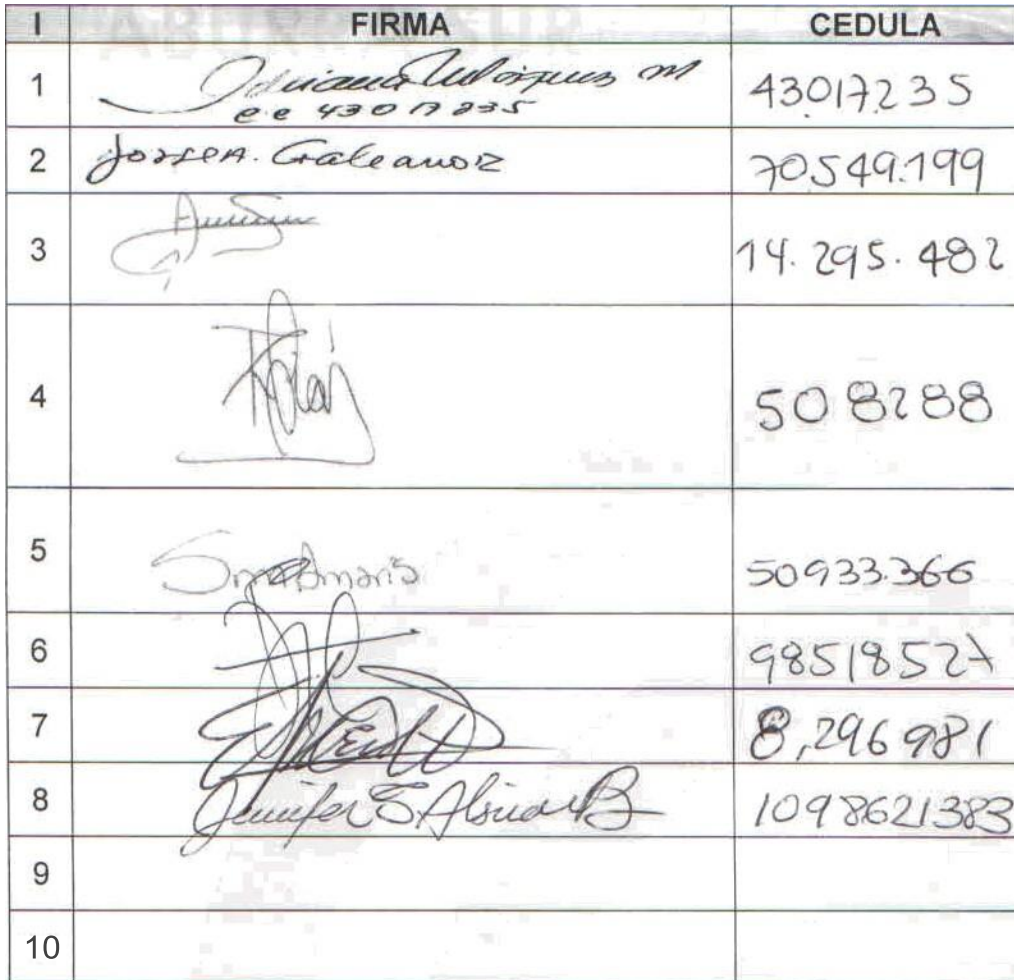 I FIRMA CEDULA
1 Adriana Velásquez M 43017235
c.c 43017235
2 Jorge A. Galeano Z 70.549.199
3 14.295.482
4 508288
5 50933.366
6 98518527
7 8,296981
8 Jennifer B 1098621383
9
10